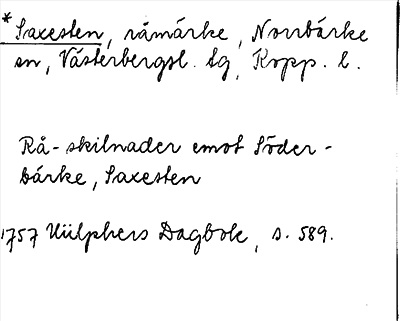 * Saxesten, råmärke, Norrbärke
sn, Västerbergsl. tg, Kopp. l.
Rå-skilnader emot Söder-
bärke, Saxesten
1757 Hülphers Dagbok, s. 589.